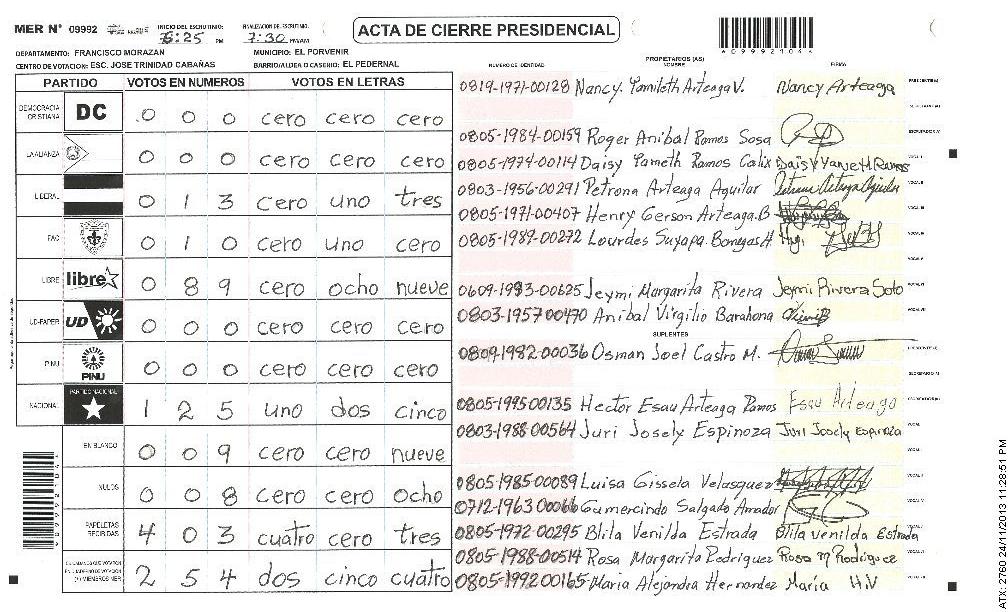 MER N° 09992 INICIO DEL ESCRUTINIO: 6:25 PM FINALIZACION DEL ESCRUTINIO: 7:30 PM/AM
ACTA DE CIERRE PRESIDENCIAL
A099921044
DEPARTAMENTO: FRANCISCO MORAZAN MUNICIPIO: EL PORVENIR
CENTRO DE VOTACION: ESC. JOSE TRINIDAD CABAÑAS BARRIO/ALDEA O CASERIO: EL PEDERNAL
PARTIDO VOTOS EN NUMEROS VOTOS EN LETRAS
DEMOCRACIA CRISTIANA DC 0 0 0 cero cero cero
LA ALIANZA 0 0 0 cero cero cero
LIBERAL 0 1 3 cero uno tres
FAC 0 1 0 cero uno cero
LIBRE libre 0 8 9 cero ocho nueve
UD-FAPER UD 0 0 0 cero cero cero
PINU PINU 0 0 0 cero cero cero
NACIONAL PARTIDO NACIONAL 1 2 5 uno dos cinco
EN BLANCO 0 0 9 cero cero nueve
NULOS 0 0 8 cero cero ocho
PAPELETAS RECIBIDAS 4 0 3 cuatro cero tres
2 5 4 dos cinco cuatro
PROPIETARIOS (AS)
NUMERO DE IDENTIDAD NOMBRE FIRMA
0819-1971-00128 Nancy. Yamileth Arteaga V. Nancy Arteaga
0805-1984-00159 Roger Anibal Ramos Sosa
0805-1974-00114 Daisy Yameth Ramos Calix Daisy Yaneth Ramos
0803-1956-00291 Petrona Arteaga Aguilar Petrona Arteaga Aguilar
0805-1971-00407 Henry Gerson Arteaga.B
0805-1989-00272 Lourdes Suyapa Banegas H.
0609-1993-00625 Jeymi Margarita Rivera Jeymi Rivera Soto
0803-1957-00470 Anibal Virgilio Barahona
SUPLENTES
0809-1982-00036 Osman Joel Castro M.
0805-1995-00135 Hector Esau Arteaga Ramos Esau Arteaga
0803-1988-00564 Juri Josely Espinoza Juri Josely Espinoza
0805-1985-00089 Luisa Gissela Velasquez
0712-1963-00066 Gumercindo Salgado Amador
0805-1972-00295 Blita Venilda Estrada Blita Venilda Estrada
0805-1988-00514 Rosa Margarita Rodriguez Rosa M Rodriguez
0805-1992-00165 Maria Alejandra Hernandez María H.V
ATX 2760 24/11/2013 11:28:51 PM